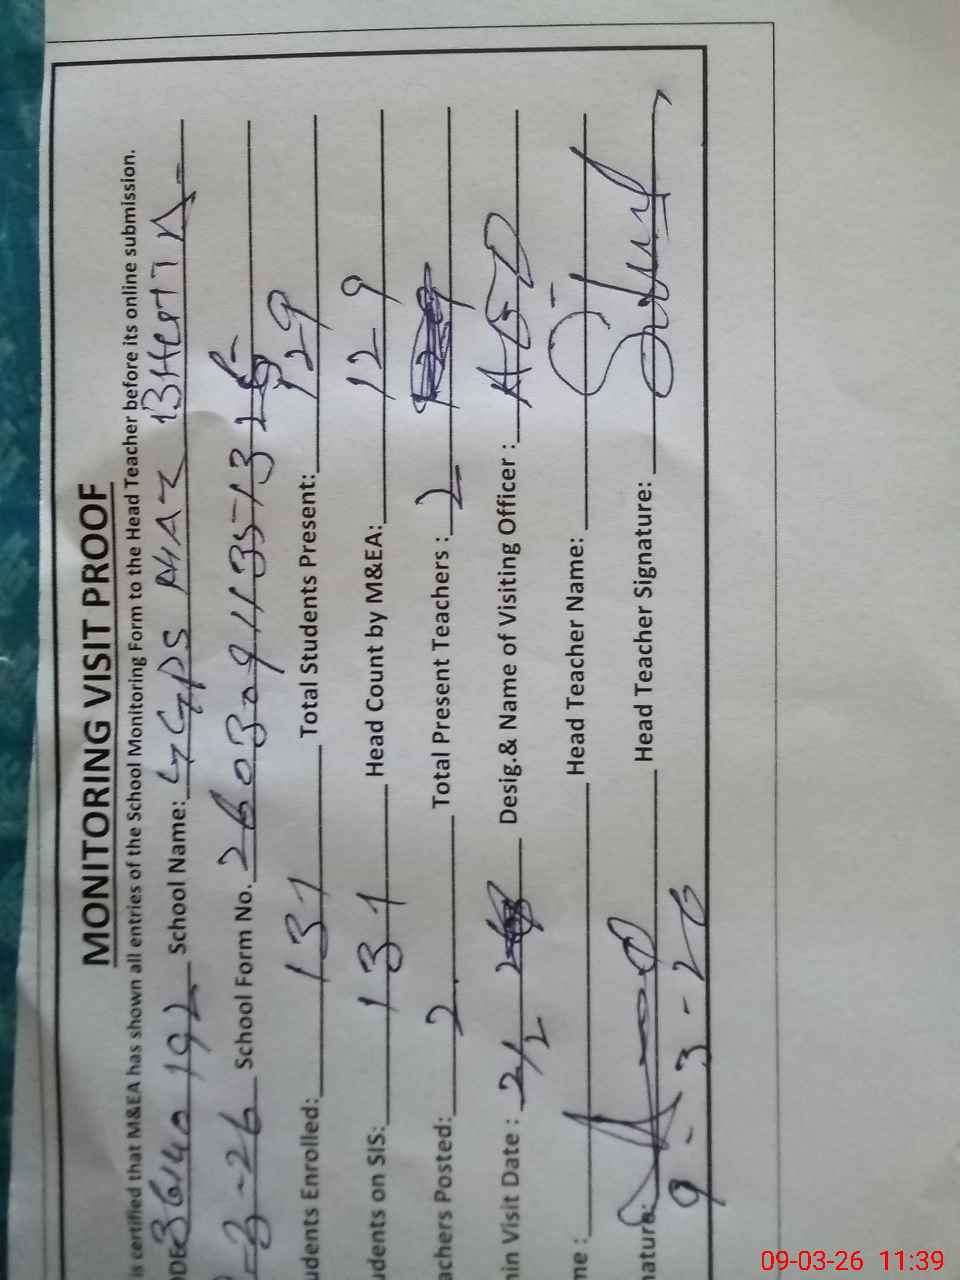 MONITORING VISIT PROOF
is certified that M&EA has shown all entries of the School Monitoring Form to the Head Teacher before its online submission.
ODE 3640192 School Name: GGPS
-3-26 School Form No. 2603091135132
udents Enrolled: 131 Total Students Present: 129
udents on SIS: 131 Head Count by M&EA: 129
achers Posted: 2 Total Present Teachers : 2
min Visit Date : 2/2 Desig.& Name of Visiting Officer :
me : Head Teacher Name:
nature: Head Teacher Signature:
9-3-26
09-03-26 11:39